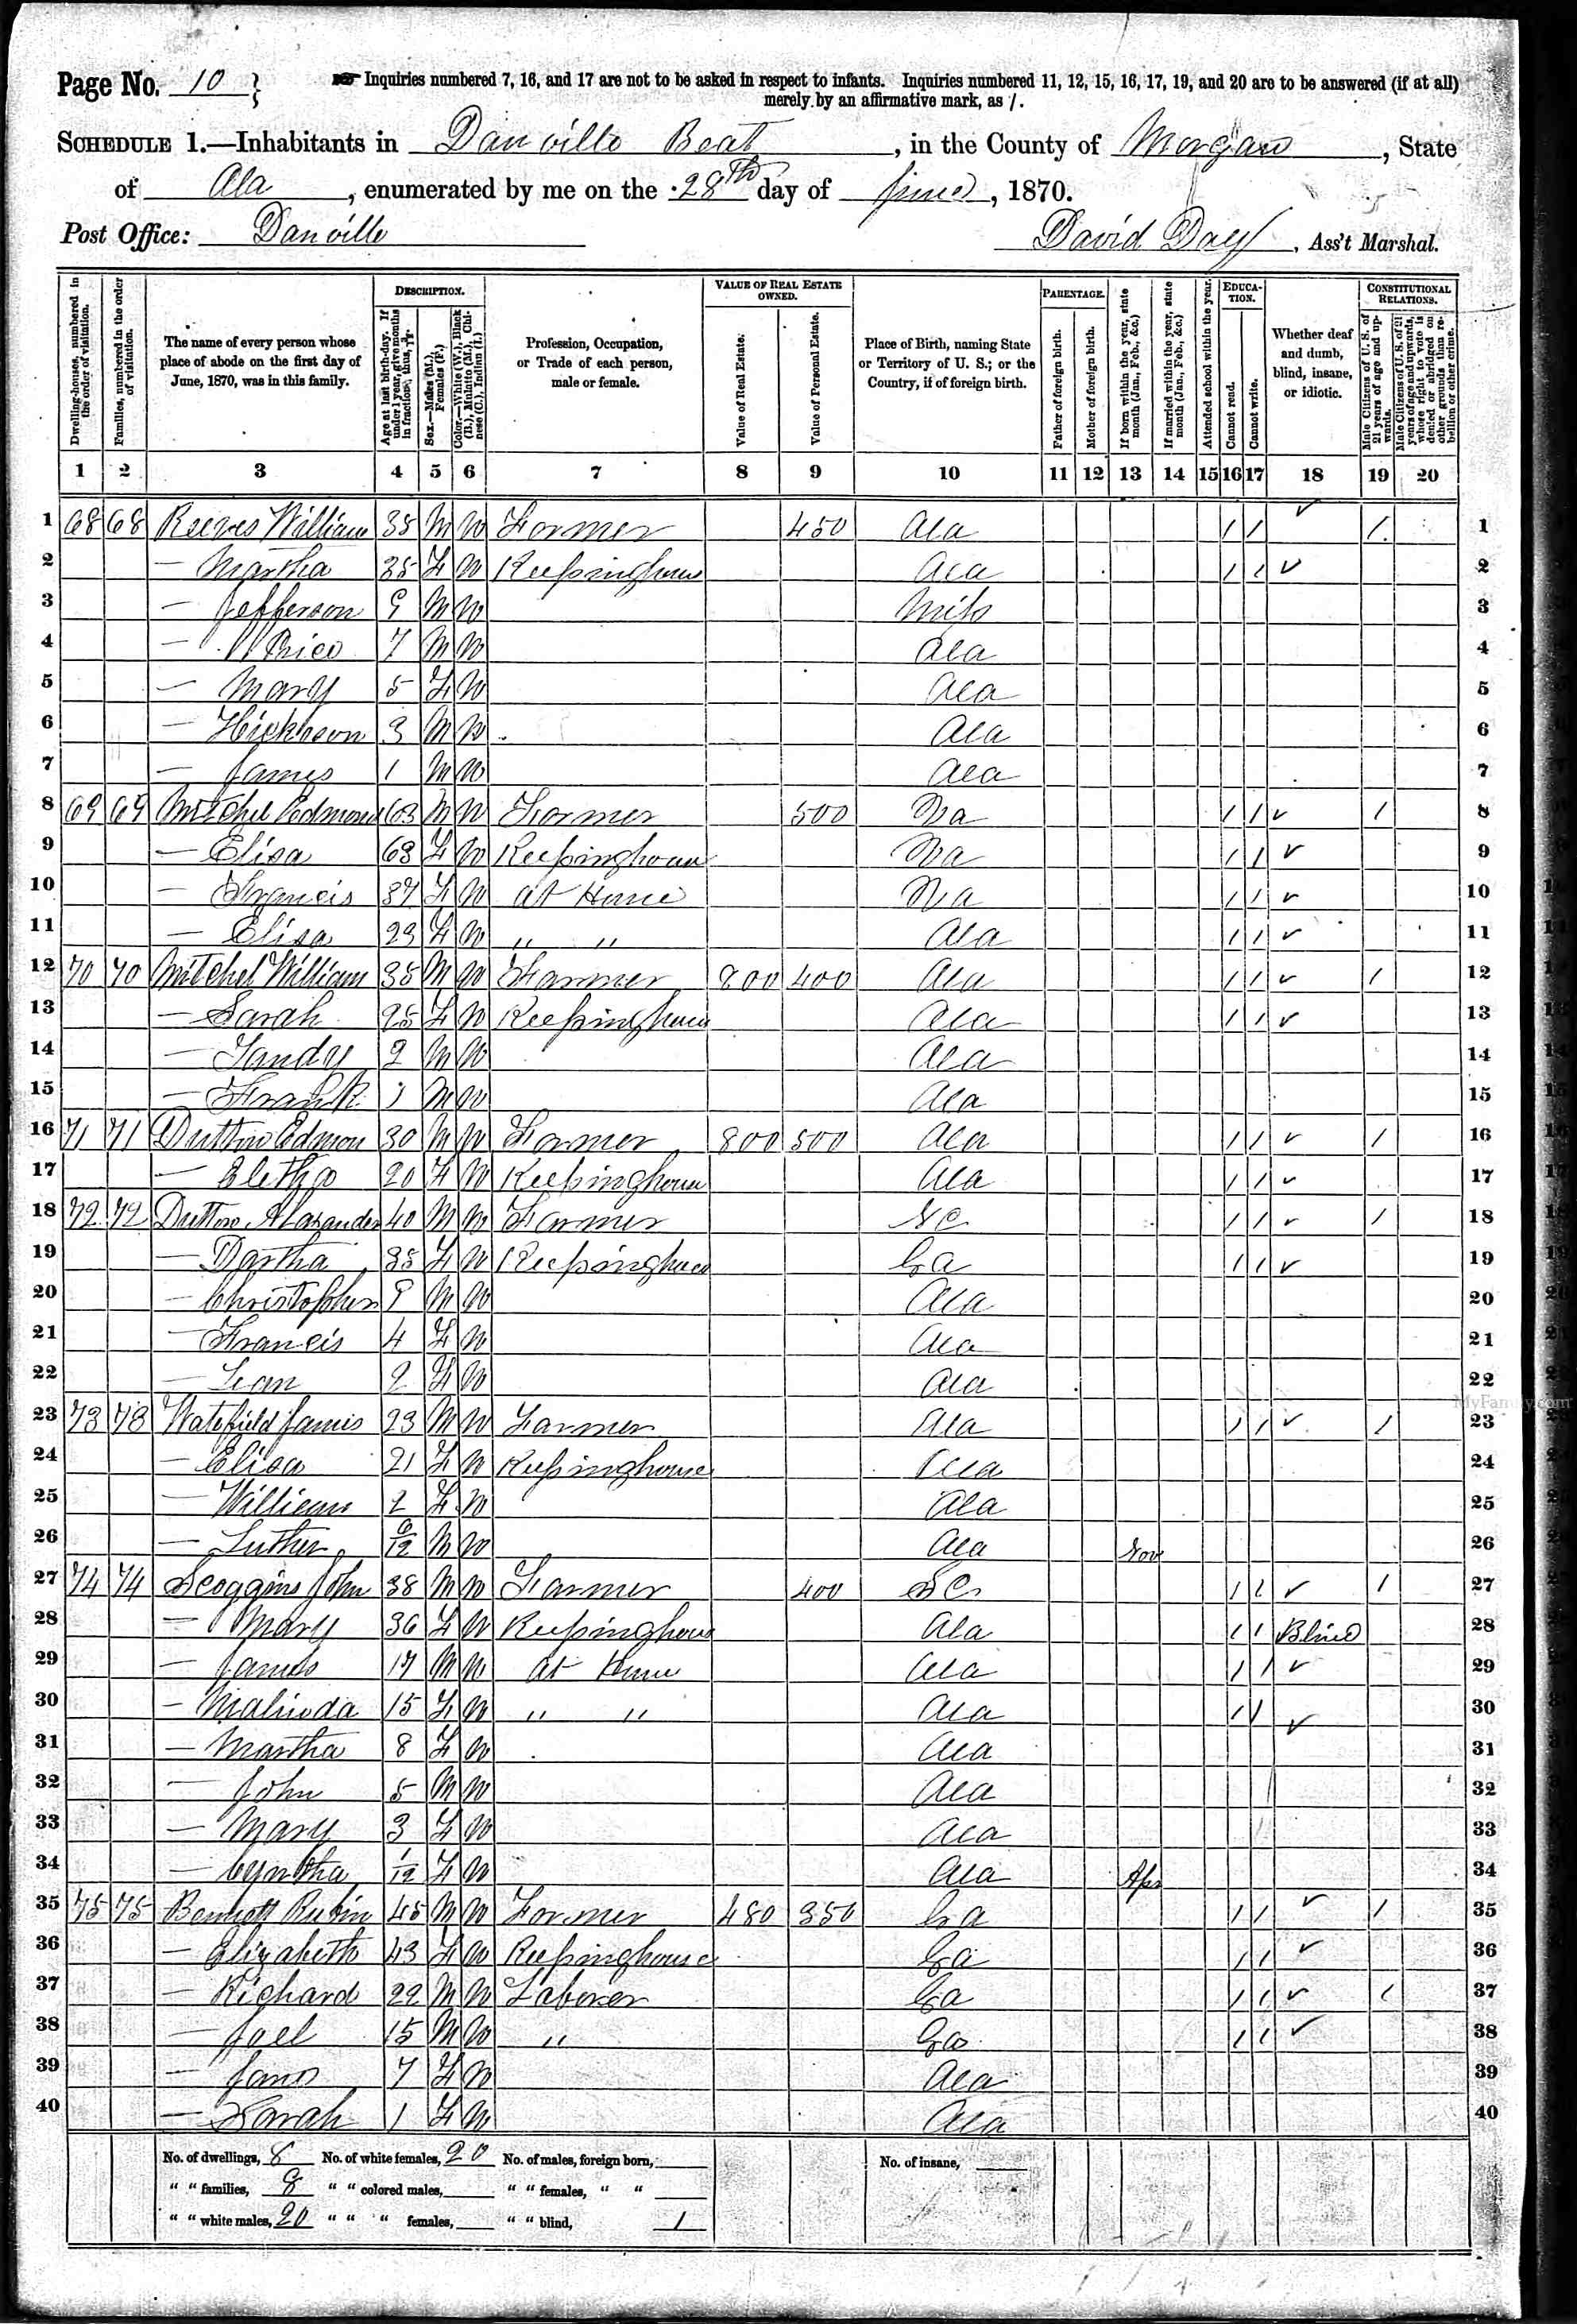 Page No. 10
Inquiries numbered 7, 16, and 17 are not to be asked in respect to infants. Inquiries numbered 11, 12, 15, 16, 17, 19, and 20 are to be answered (if at all)
merely by an affirmative mark, as /.
SCHEDULE 1.—Inhabitants in Danville Beat, in the County of Morgan, State
of Ala, enumerated by me on the 28th day of June, 1870.
Post Office: Danville David Day, Ass't Marshal.
Dwelling-houses, numbered in the order of visitation.
Families, numbered in the order of visitation.
The name of every person whose place of abode on the first day of June, 1870, was in this family.
DESCRIPTION.
Age at last birth-day. If under 1 year, give months in fractions, thus, 3/12
Sex.—Males (M.), Females (F.)
Color.—White (W.), Black (B.), Mulatto (M.), Chinese (C.), Indian (I.)
Profession, Occupation, or Trade of each person, male or female.
VALUE OF REAL ESTATE OWNED.
Value of Real Estate.
Value of Personal Estate.
Place of Birth, naming State or Territory of U. S.; or the Country, if of foreign birth.
PARENTAGE.
Father of foreign birth.
Mother of foreign birth.
If born within the year, state month (Jan., Feb., &c.)
If married within the year, state month (Jan., Feb., &c.)
Attended school within the year.
EDUCATION.
Cannot read.
Cannot write.
Whether deaf and dumb, blind, insane, or idiotic.
CONSTITUTIONAL RELATIONS.
Male Citizens of U. S. of 21 years of age and upwards.
Male Citizens of U. S. of 21 years of age and upwards, whose right to vote is denied or abridged on other grounds than rebellion or other crime.
1 2 3 4 5 6 7 8 9 10 11 12 13 14 15 16 17 18 19 20
1 68 68 Reeves William 38 M W Farmer 450 Ala / / ✓ /. 1
2 — Martha 35 F W Keepinghouse Ala / / ✓ 2
3 — Jefferson 9 M W Miss 3
4 — Price 7 M W Ala 4
5 — Mary 5 F W Ala 5
6 — Hickason 3 M W Ala 6
7 — James 1 M W Ala 7
8 69 69 Mitchel Edmond 63 M W Farmer 500 Va / / ✓ / 8
9 — Elisa 63 F W Keepinghouse Va / / ✓ 9
10 — Francis 37 F W at Home Va / / ✓ 10
11 — Elisa 23 F W " " Ala / / ✓ 11
12 70 70 Mitchel William 35 M W Farmer 800 400 Ala / / ✓ / 12
13 — Sarah 25 F W Keepinghouse Ala / / ✓ 13
14 — Tandy 2 M W Ala 14
15 — Frank 1 M W Ala 15
16 71 71 Dutton Edmon 30 M W Farmer 800 500 Ala / / ✓ / 16
17 — Eletha 20 F W Keepinghouse Ala / / ✓ 17
18 72 72 Dutton Alaxander 40 M W Farmer SC / / ✓ / 18
19 — Dartha 35 F W Keepinghouse Ga / / ✓ 19
20 — Christopher 9 M W Ala 20
21 — Francis 4 F W Ala 21
22 — 2 F W Ala 22
23 73 73 Watefield James 23 M W Farmer Ala / / ✓ / 23
24 — Elisa 21 F W Keepinghouse Ala 24
25 — William 2 F W Ala 25
26 — Luther /12 M W Ala Nov 26
27 74 74 Scoggins John 38 M W Farmer 400 SC / / ✓ / 27
28 — Mary 36 F W Keepinghouse Ala / / Blind 28
29 — James 17 M W at Home Ala / / ✓ 29
30 — Malinda 15 F W " " Ala / / ✓ 30
31 — Martha 8 F W Ala 31
32 — John 5 M W Ala 32
33 — Mary 3 F W Ala 33
34 — Cyntha 1/12 F W Ala Apr 34
35 75 75 Rubin 45 M W Farmer 480 350 Ga / / ✓ / 35
36 — Elizabeth 43 F W Keepinghouse Ga / / ✓ 36
37 — Richard 22 M W Laborer Ga / / ✓ / 37
38 — Joel 15 M W " Ga / / ✓ 38
39 — Jane 7 F W Ala 39
40 — Sarah 1 F W Ala 40
No. of dwellings, 8 No. of white females, 20 No. of males, foreign born, No. of insane,
" " families, 8 " " colored males, " " females, " "
" " white males, 20 " " " females, " " blind, 1